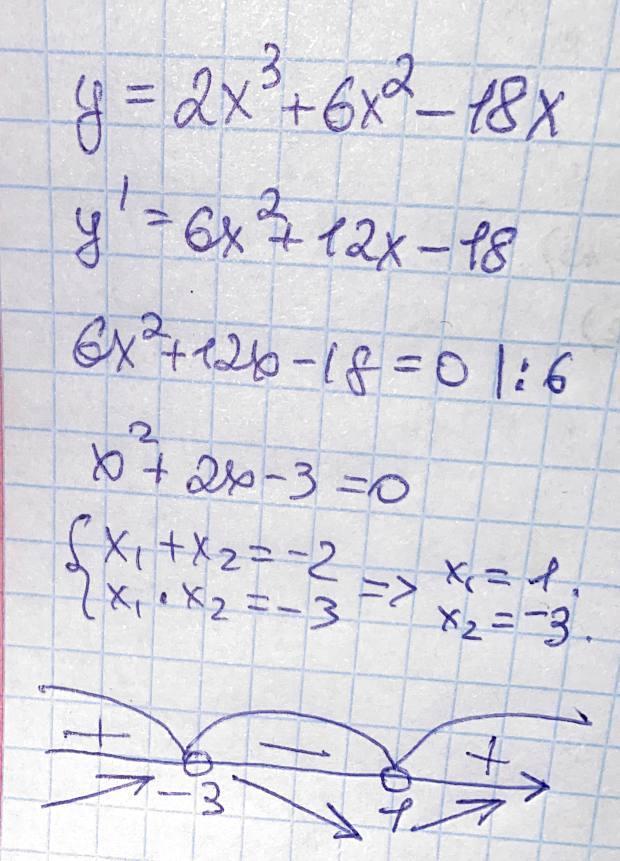 y = 2x³ + 6x² − 18x
y' = 6x² + 12x − 18
6x² + 12x − 18 = 0 | : 6
x² + 2x − 3 = 0
{ x₁ + x₂ = −2
{ x₁ · x₂ = −3 => x₁ = 1. x₂ = −3.
+ − +
−3 1